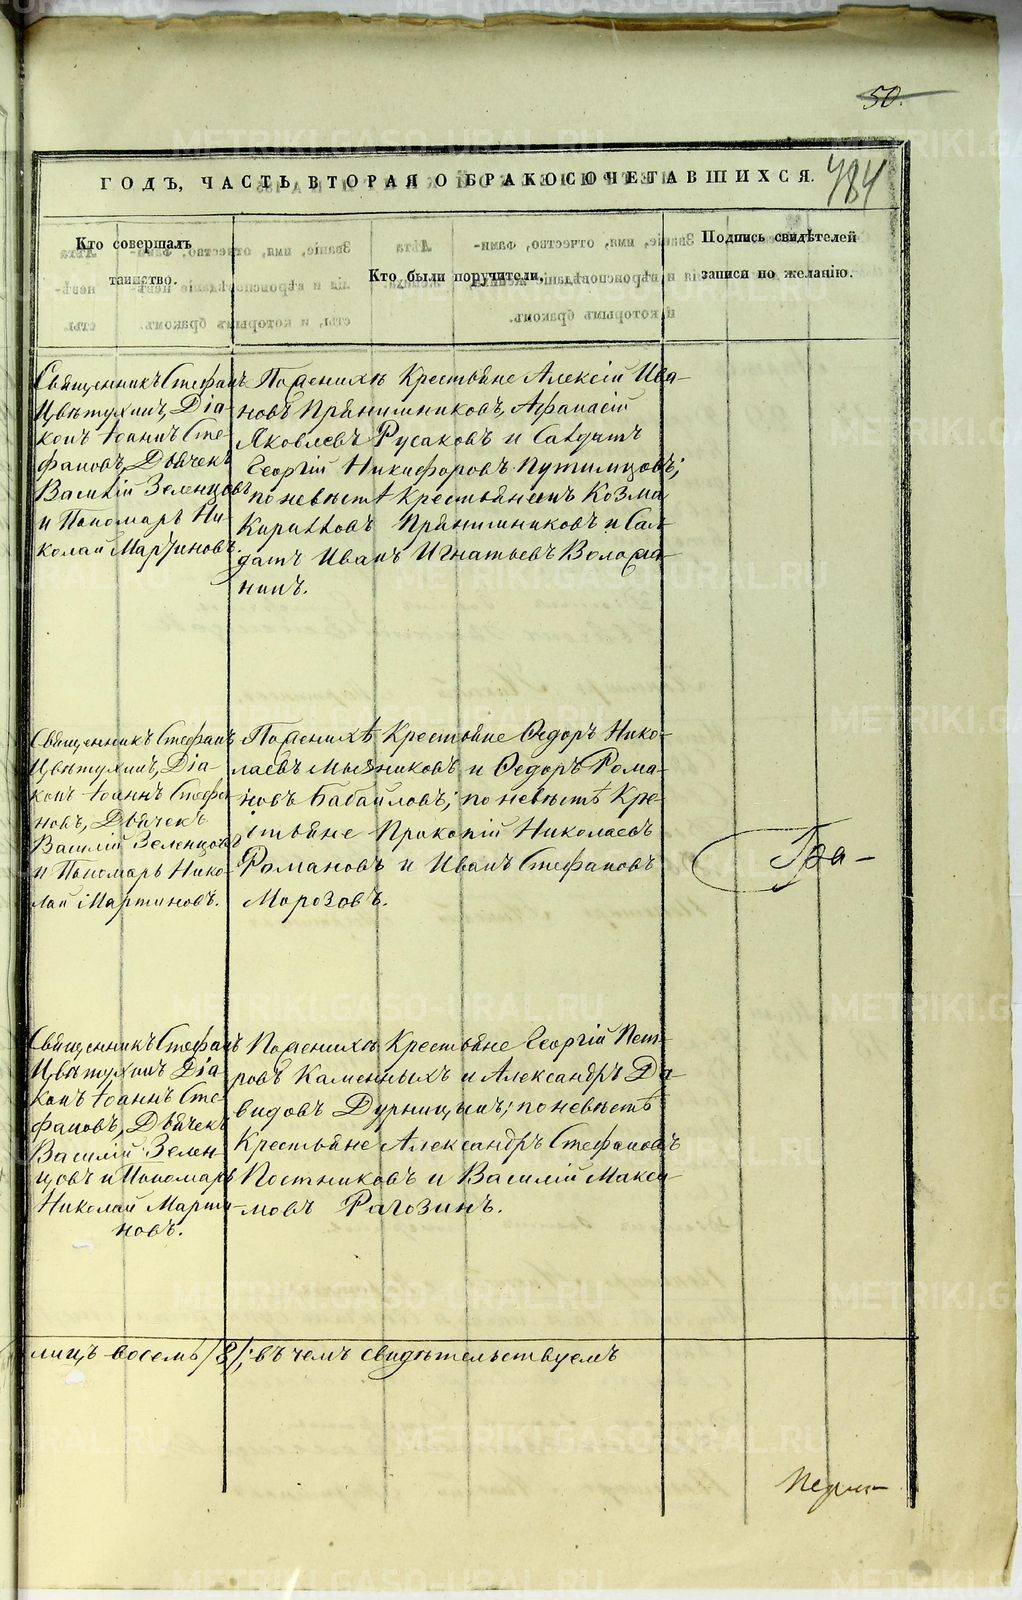 50.
ГОДЪ, ЧАСТЬ ВТОРАЯ О БРАКОСОЧЕТАВШИХСЯ.
484
Кто совершалъ
таинство.
Кто были поручители.
Подпись свидѣтелей
записи по желанію.
Священникъ Стефанъ
Цвѣтухинъ, Діа-
конъ Іоаннъ Сте-
фановъ, Дьячекъ
Василій Зеленцовъ
и Пономарь Ни-
колай Мартиновъ.
По женихѣ Крестьяне Алексій Ива-
новъ Прянишниковъ, Афанасій
Яковлевъ Русаковъ и Салдатъ
Георгій Никифоровъ Путимцовъ;
по невѣстѣ крестьянинъ Козма
Кириловъ Прянишниковъ и Сал-
датъ Иванъ Игнатьевъ
Священникъ Стефанъ
Цвѣтухинъ, Діа-
конъ Іоаннъ Стефа-
новъ, Дьячекъ
Василій Зеленцовъ
и Пономарь Нико-
лай Мартиновъ.
По женихѣ Крестьяне Ѳедоръ Нико-
лаевъ и Ѳедоръ Рома-
новъ Бабайловъ; по невѣстѣ Кре-
стьяне Прокопій Николаевъ
Романовъ и Иванъ Стефановъ
Морозовъ.
Гра-
Священникъ Стефанъ
Цвѣтухинъ Діа-
конъ Іоаннъ Сте-
фановъ, Дьячекъ
Василій Зелен-
цовъ и Пономарь
Николай Марти-
новъ.
По женихѣ Крестьяне Георгій Пет-
ровъ Каменныхъ и Александръ Да-
видовъ Дурницынъ; по невѣстѣ
Крестьяне Александръ Стефановъ
Постниковъ и Василій Макси-
мовъ Рагозинъ.
лицъ восемь /8/; въ чемъ свидѣтельствуемъ
METRIKI.GASO-URAL.RU